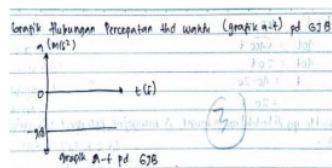 Grafik Hubungan Percepatan thd waktu (grafik a-t) pd GJB
a (m/s²)
0
t (s)
3
grafik a-t pd GJB